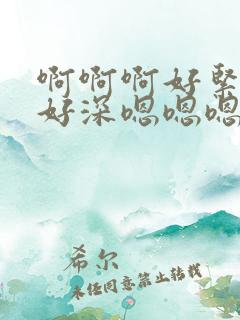 啊啊啊好紧
好深嗯嗯嗯
希尔
未经同意禁止转载